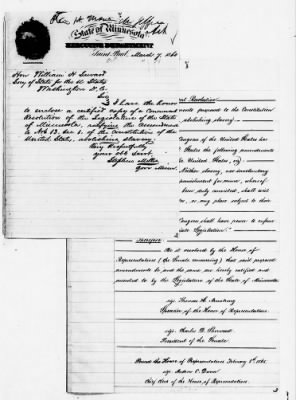 State of Minnesota
EXECUTIVE DEPARTMENT
Saint Paul, March 7, 1865
Hon William H. Seward
Secy of State for the U. States
Washington D.C.
Sir
I have the honor
to enclose a certified copy of a
Resolution of the Legislature of the State
of Minnesota, ratifying the Amendment
to Art 13, Sec 1. of the Constitution of the
United States, abolishing slavery.
Very Respectfully
your obt Servt.
Stephen Miller
Gov Minn.
Resolution
amendments proposed to the Constitution
abolishing slavery
Congress of the United States has
States the following amendments
United States, viz
Neither slavery, nor involuntary
punishment for crime, whereof
been duly convicted, shall
or any place subject to their
Congress shall have power to enforce
Legislation
Therefore
Be it resolved by the House of
Representatives (the Senate concurring) that said proposed
amendments be and the same are hereby ratified and
assented to by the Legislature of the State of Minnesota
Thomas H. Armstrong
Speaker of the House of Representatives
Charles D. Sherwood
President of the Senate
Passed the House of Representatives February 8th 1865
Andrew C. Dunn
Chief Clerk of the House of Representatives